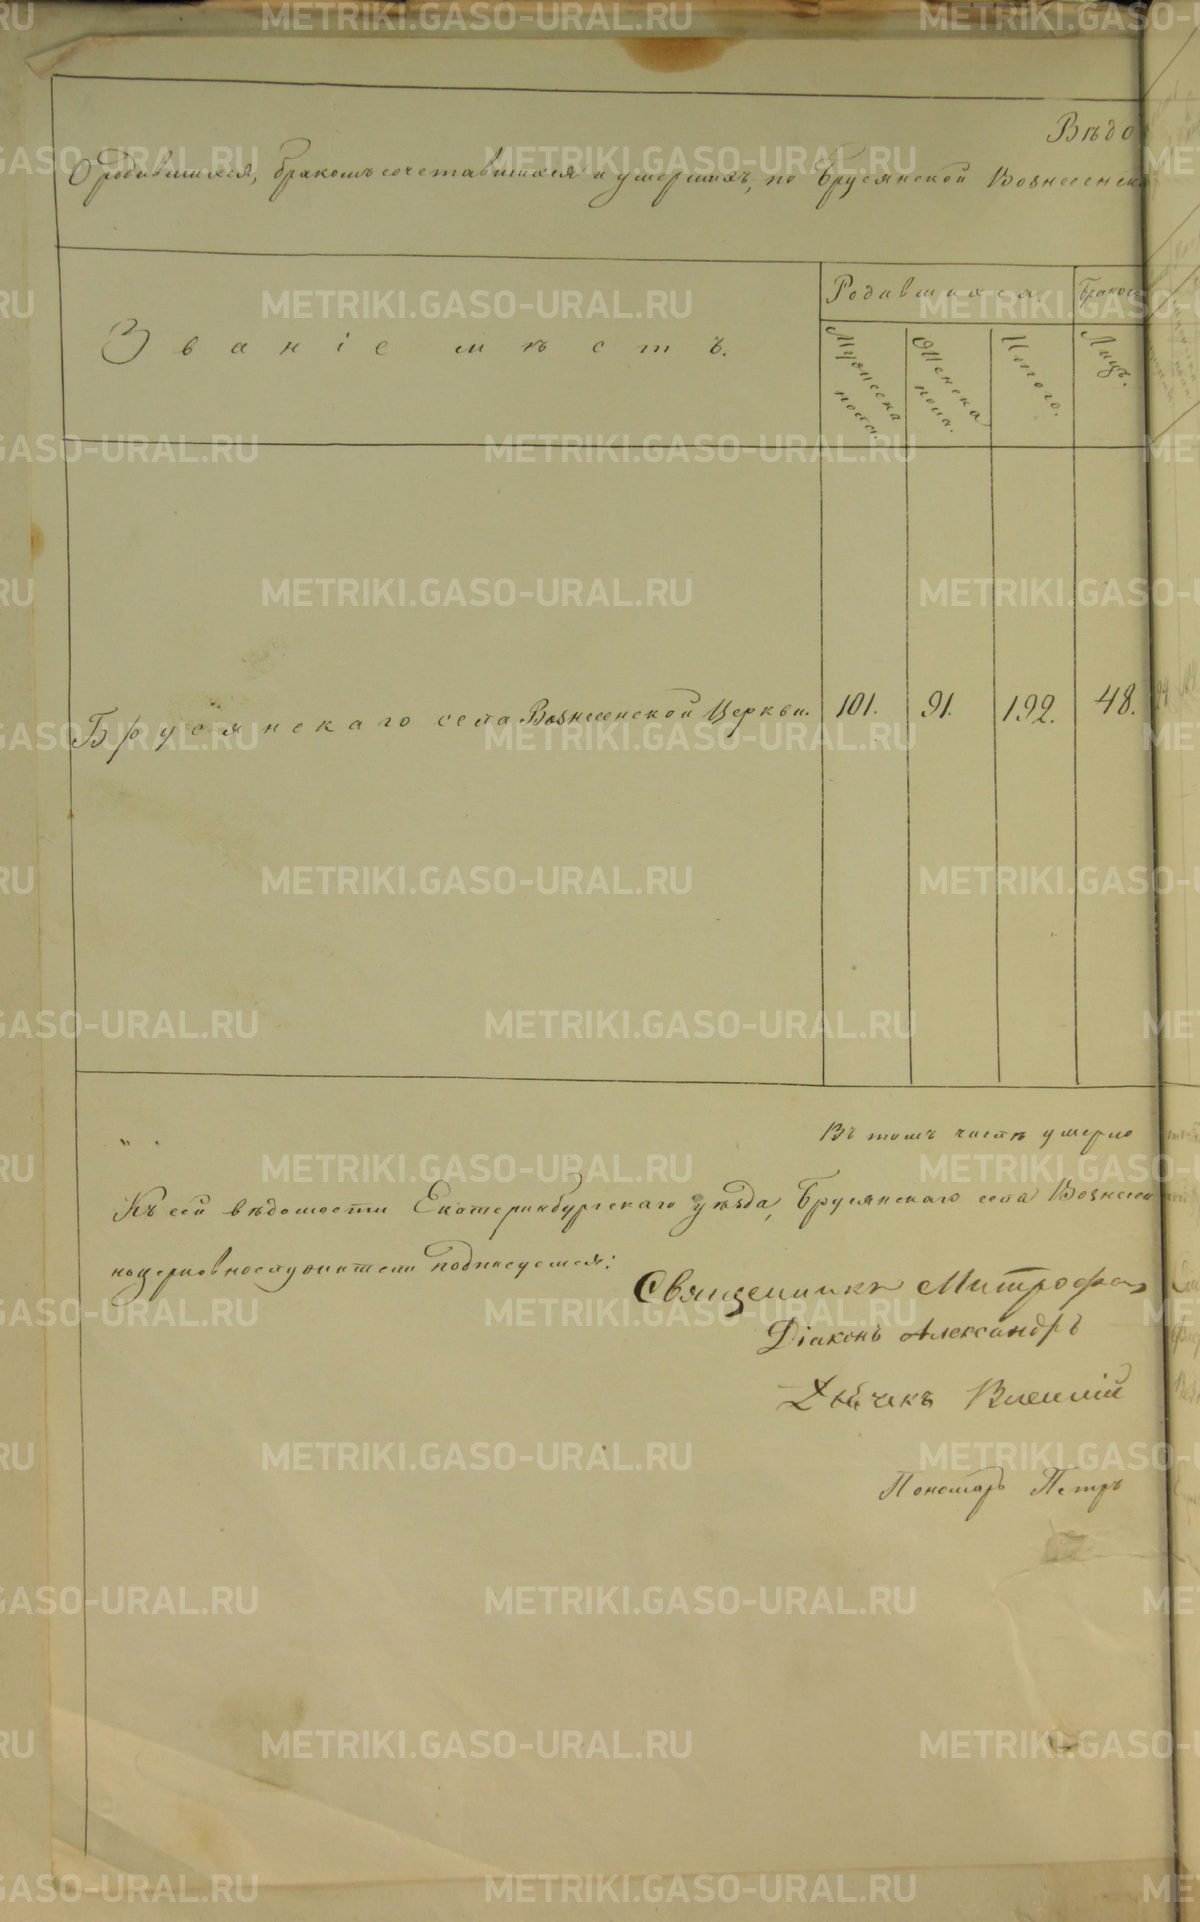 Вѣдо
О родившихся, бракомъ сочетавшихся и умершихъ, по Брусянской Вознесенско
Званіе мѣстъ.
Родившихся.
Бракосо
Мужеска пола.
Женска пола.
Итого.
Лицъ.
Брусянскаго села Вознесенской Церкви.
101.
91.
192.
48.
Въ томъ числѣ умерло
Къ сей вѣдомости Екатеринбургскаго уѣзда, Брусянскаго села Вознесен
ноцерковнослужители подписуемся:
Священникъ Митрофан
Діаконъ Александръ
Дьячекъ
Пономарь Петръ
METRIKI.GASO-URAL.RU